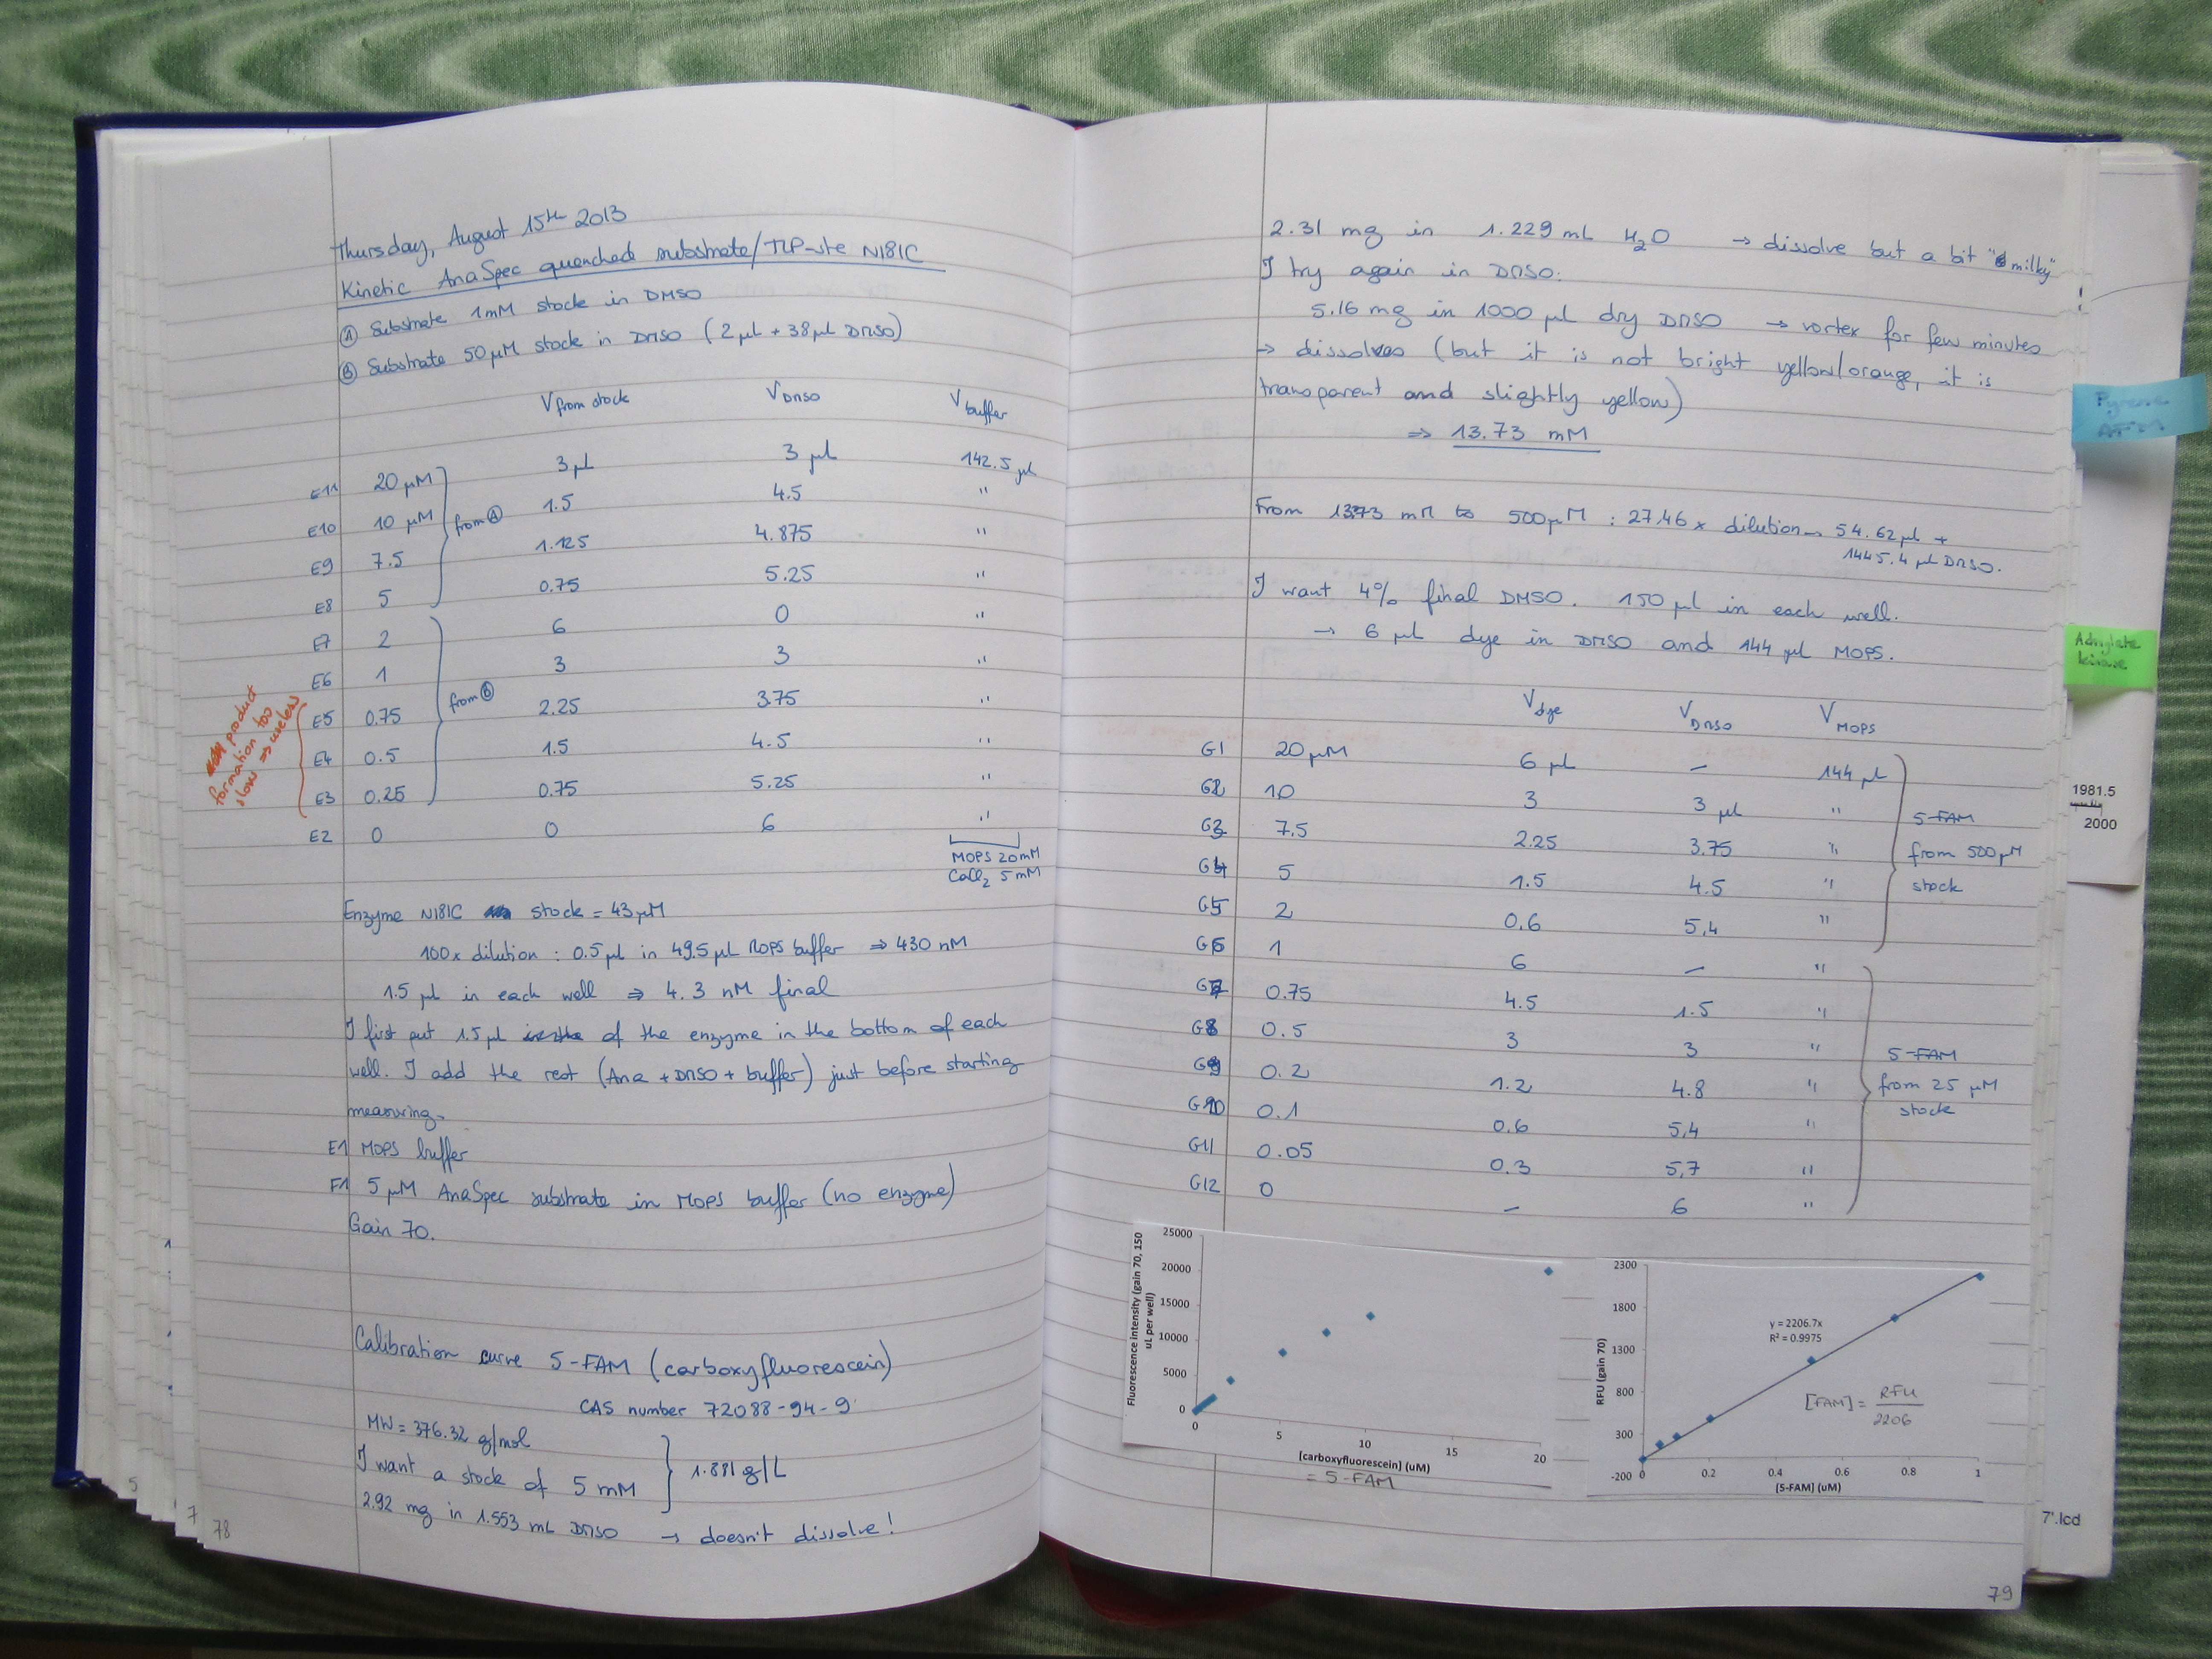 Thursday, August 15th 2013
Kinetic AnaSpec quenched substrate/TLP-ste N181C
Ⓐ Substrate 1mM stock in DMSO
Ⓑ Substrate 50 µM stock in DMSO (2 µL + 38 µL DMSO)
V from stock V DMSO V buffer
E11 20 µM 3 µL 3 µL 142.5 µL
E10 10 µM 1.5 4.5 "
from Ⓐ
E9 7.5 1.125 4.875 "
E8 5 0.75 5.25 "
E7 2 6 0 "
E6 1 3 3 "
from Ⓑ
E5 0.75 2.25 3.75 "
E4 0.5 1.5 4.5 "
E3 0.25 0.75 5.25 "
E2 0 0 6 "
product
formation too
slow ⇒ useless
MOPS 20 mM
CaCl2 5 mM
Enzyme N181C stock = 43 µM
100x dilution : 0.5 µL in 49.5 µL MOPS buffer ⇒ 430 nM
1.5 µL in each well ⇒ 4.3 nM final
I first put 1.5 µL of the enzyme in the bottom of each
well. I add the rest (Ana + DMSO + buffer) just before starting
measuring.
E1 MOPS buffer
F1 5 µM AnaSpec substrate in MOPS buffer (no enzyme)
Gain 70.
Calibration curve 5-FAM (carboxyfluorescein)
CAS number 72088-94-9
MW = 376.32 g/mol
I want a stock of 5 mM } 1.881 g/L
2.92 mg in 1.553 mL DMSO → doesn't dissolve!
5
7
78
2.31 mg in 1.229 mL H2O → dissolve but a bit "milky"!
I try again in DMSO:
5.16 mg in 1000 µL dry DMSO → vortex for few minutes
→ dissolves (but it is not bright yellow/orange, it is
transparent and slightly yellow)
⇒ 13.73 mM
From 13.73 mM to 500 µM : 27.46 x dilution → 54.62 µL +
1445.4 µL DMSO.
I want 4% final DMSO. 150 µL in each well.
→ 6 µL dye in DMSO and 144 µL MOPS.
V dye V DMSO V MOPS
G1 20 µM 6 µL – 144 µL
G2 10 3 3 µL "
G3 7.5 2.25 3.75 "
G4 5 1.5 4.5 "
G5 2 0.6 5.4 "
5-FAM
from 500 µM
stock
G6 1 6 – "
G7 0.75 4.5 1.5 "
G8 0.5 3 3 "
G9 0.2 1.2 4.8 "
G10 0.1 0.6 5.4 "
G11 0.05 0.3 5.7 "
G12 0 – 6 "
5-FAM
from 25 µM
stock
Fluorescence intensity (gain 70, 150
uL per well)
25000
20000
15000
10000
5000
0
0 5 10 15 20
[carboxyfluorescein] (uM)
= 5-FAM
RFU (gain 70)
2300
1800
1300
800
300
-200
0 0.2 0.4 0.6 0.8 1
[5-FAM] (uM)
y = 2206.7x
R² = 0.9975
[FAM] = RFU / 2206
79
Pyrene
AFM
Adnylate
kinase
1981.5
2000
7'.lcd